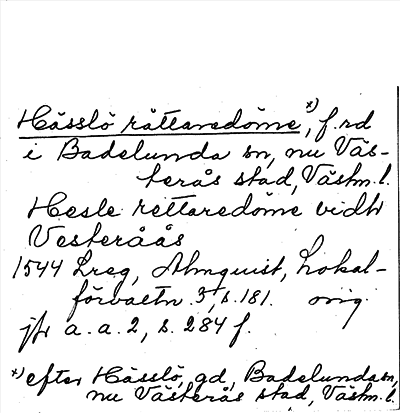 Hässlö rättaredöme *), f.rd
i Badelunda sn, nu Väs-
terås stad, Västm.l.
Hesle rettaredöme vidh
Vesteråås
1544 Lreg, Almquist, Lokal-
förvaltn. 3, s. 181. orig.
jfr a.a. 2, s. 284 f.
*) efter Hässlö, gd, Badelunda sn,
nu Västerås stad, Västm.l.